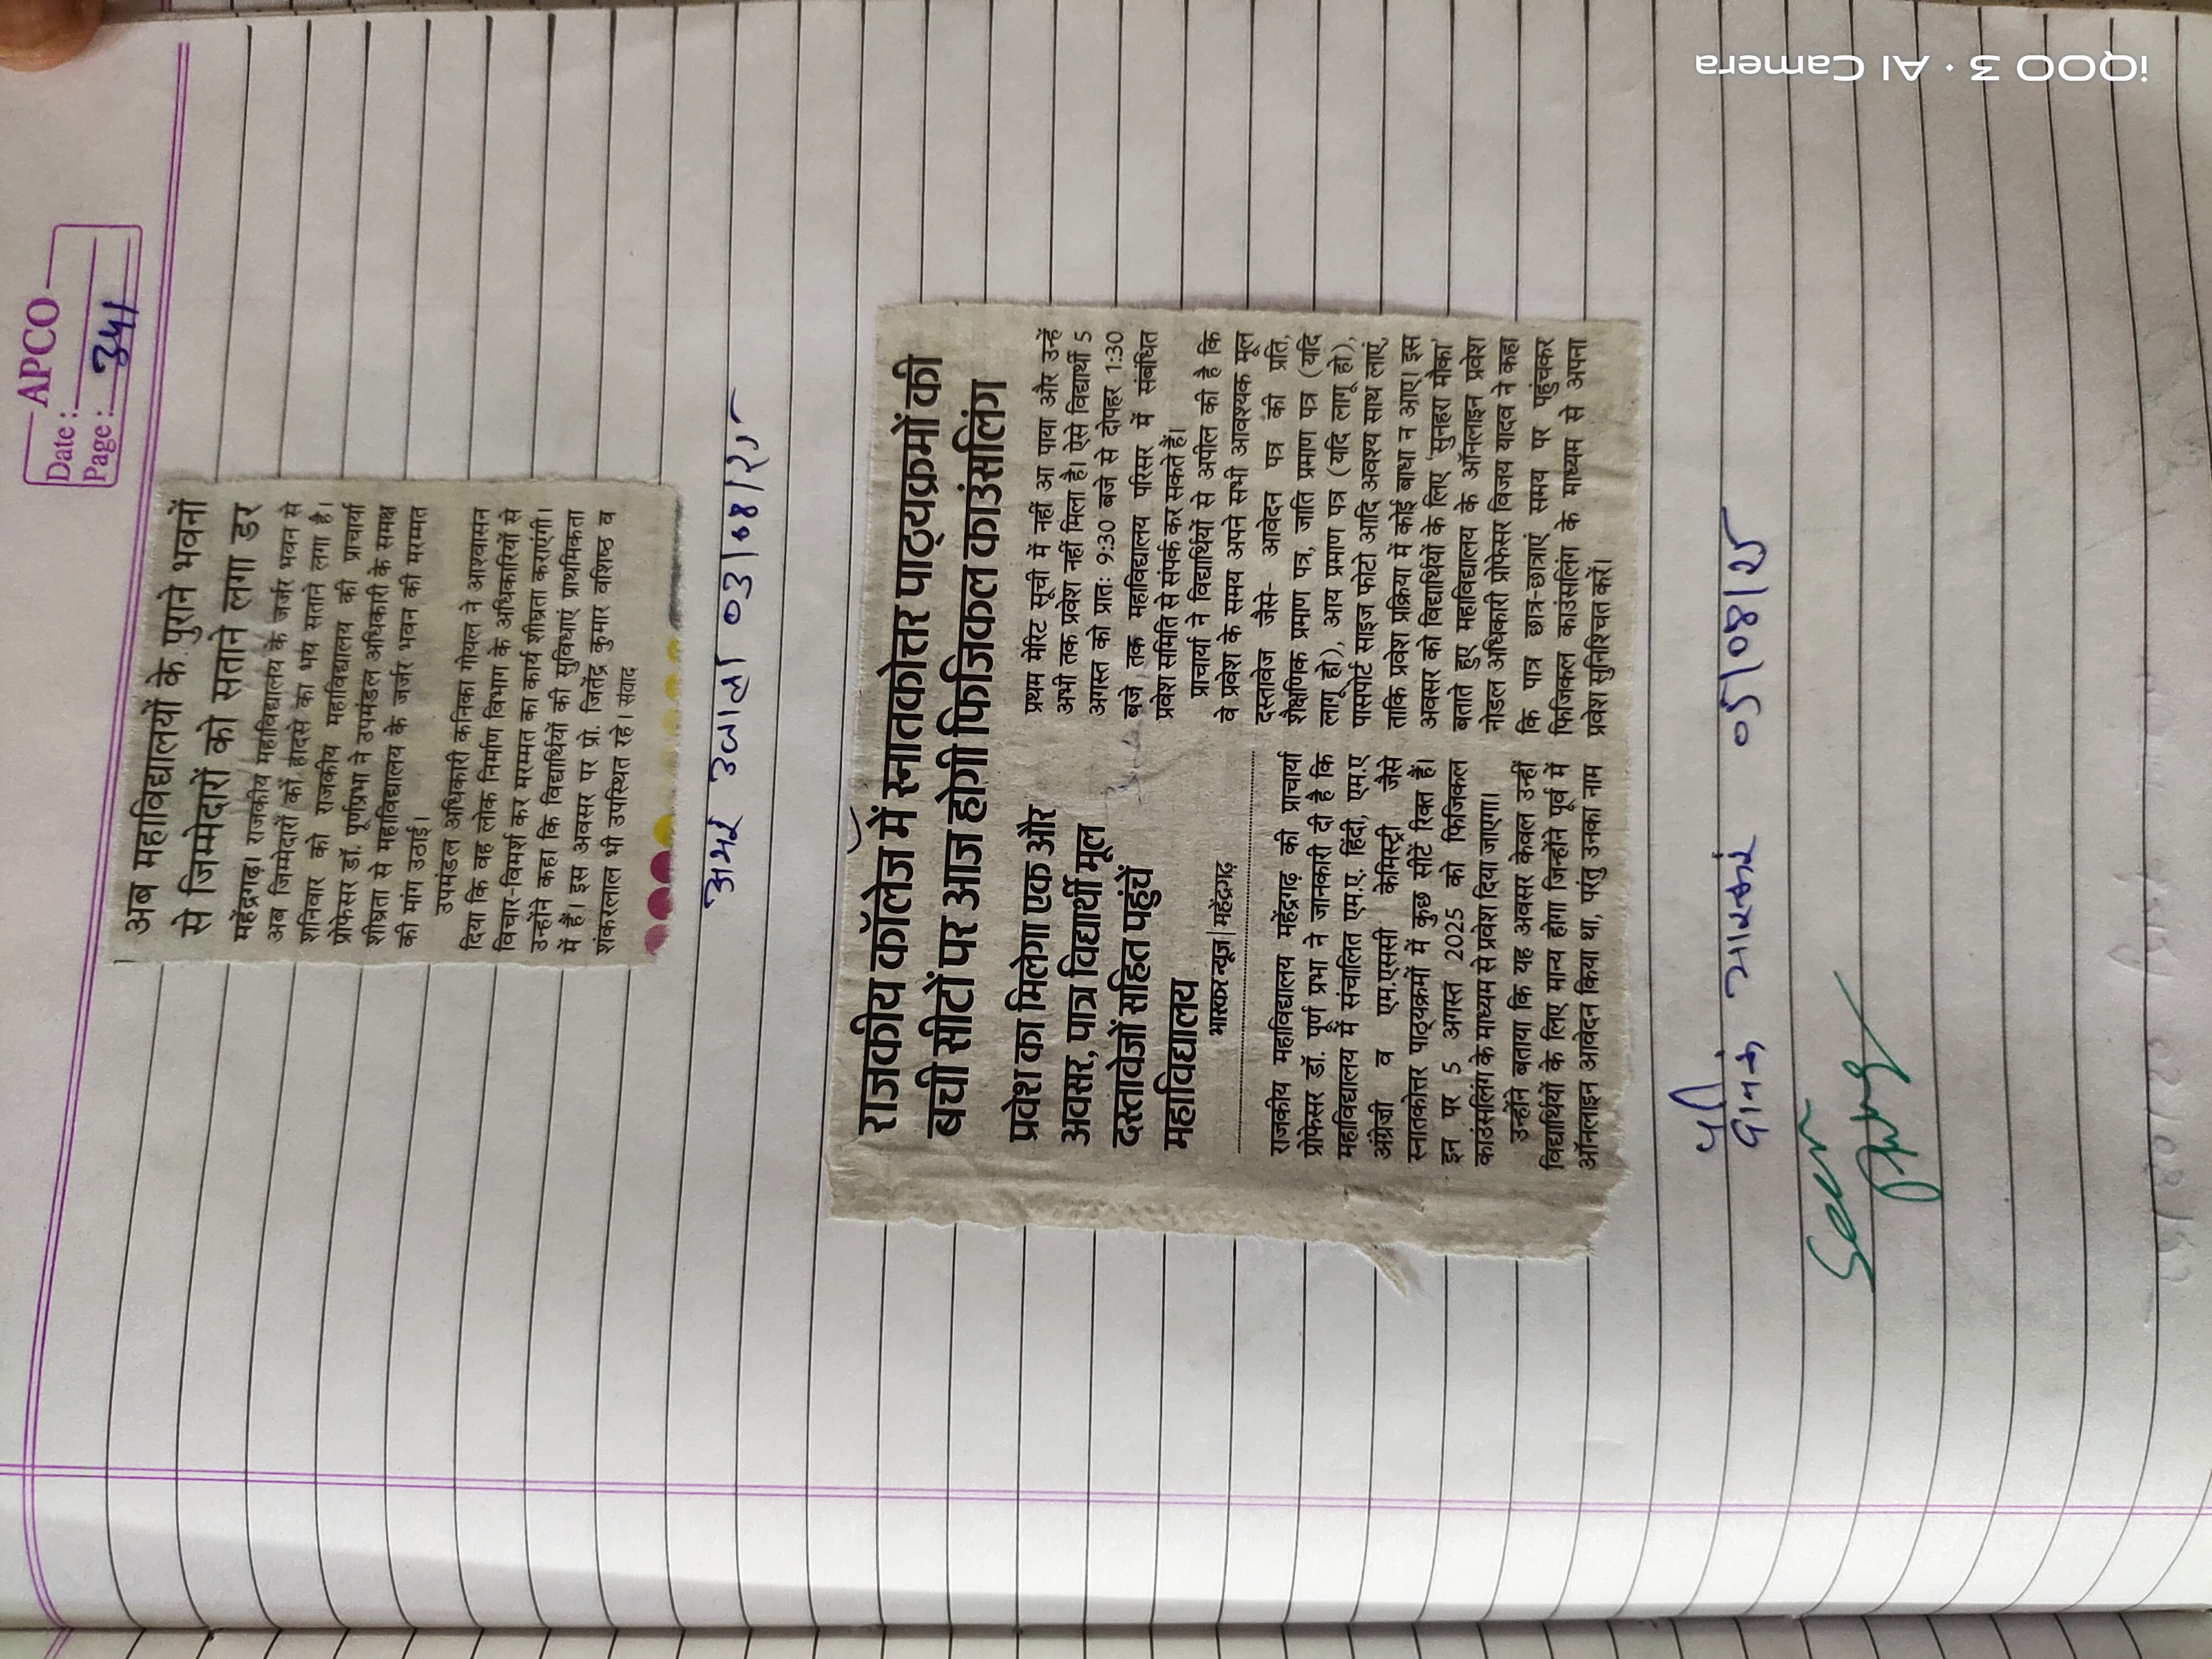 APCO
Date :
Page : 341
अब महाविद्यालयों के पुराने भवनों
से जिम्मेदारों को सताने लगा डर
महेंद्रगढ़। राजकीय महाविद्यालय के जर्जर भवन से
अब जिम्मेदारों को हादसे का भय सताने लगा है।
शनिवार को राजकीय महाविद्यालय की प्राचार्या
प्रोफेसर डॉ. पूर्णप्रभा ने उपमंडल अधिकारी के समक्ष
शीघ्रता से महाविद्यालय के जर्जर भवन की मरम्मत
की मांग उठाई।
उपमंडल अधिकारी कनिका गोयल ने आश्वासन
दिया कि वह लोक निर्माण विभाग के अधिकारियों से
विचार-विमर्श कर मरम्मत का कार्य शीघ्रता कराएंगी।
उन्होंने कहा कि विद्यार्थियों की सुविधाएं प्राथमिकता
में हैं। इस अवसर पर प्रो. जितेंद्र कुमार वशिष्ठ व
शंकरलाल भी उपस्थित रहे। संवाद
अमर उजाला 03/08/25
राजकीय कॉलेज में स्नातकोत्तर पाठ्यक्रमों की
बची सीटों पर आज होगी फिजिकल काउंसलिंग
प्रवेश का मिलेगा एक और
अवसर, पात्र विद्यार्थी मूल
दस्तावेजों सहित पहुंचें
महाविद्यालय
भास्कर न्यूज | महेंद्रगढ़
राजकीय महाविद्यालय महेंद्रगढ़ की प्राचार्या
प्रोफेसर डॉ. पूर्ण प्रभा ने जानकारी दी है कि
महाविद्यालय में संचालित एम.ए. हिंदी, एम.ए
अंग्रेजी व एम.एससी केमिस्ट्री जैसे
स्नातकोत्तर पाठ्यक्रमों में कुछ सीटें रिक्त हैं।
इन पर 5 अगस्त 2025 को फिजिकल
काउंसलिंग के माध्यम से प्रवेश दिया जाएगा।
उन्होंने बताया कि यह अवसर केवल उन्हीं
विद्यार्थियों के लिए मान्य होगा जिन्होंने पूर्व में
ऑनलाइन आवेदन किया था, परंतु उनका नाम
प्रथम मेरिट सूची में नहीं आ पाया और उन्हें
अभी तक प्रवेश नहीं मिला है। ऐसे विद्यार्थी 5
अगस्त को प्रातः 9:30 बजे से दोपहर 1:30
बजे तक महाविद्यालय परिसर में संबंधित
प्रवेश समिति से संपर्क कर सकते हैं।
प्राचार्या ने विद्यार्थियों से अपील की है कि
वे प्रवेश के समय अपने सभी आवश्यक मूल
दस्तावेज जैसे- आवेदन पत्र की प्रति,
शैक्षणिक प्रमाण पत्र, जाति प्रमाण पत्र (यदि
लागू हो), आय प्रमाण पत्र (यदि लागू हो),
पासपोर्ट साइज फोटो आदि अवश्य साथ लाएं,
ताकि प्रवेश प्रक्रिया में कोई बाधा न आए। इस
अवसर को विद्यार्थियों के लिए 'सुनहरा मौका'
बताते हुए महाविद्यालय के ऑनलाइन प्रवेश
नोडल अधिकारी प्रोफेसर विजय यादव ने कहा
कि पात्र छात्र-छात्राएं समय पर पहुंचकर
फिजिकल काउंसलिंग के माध्यम से अपना
प्रवेश सुनिश्चित करें।
दैनिक भास्कर 05/08/25
Seen
iQOO 3 · AI Camera